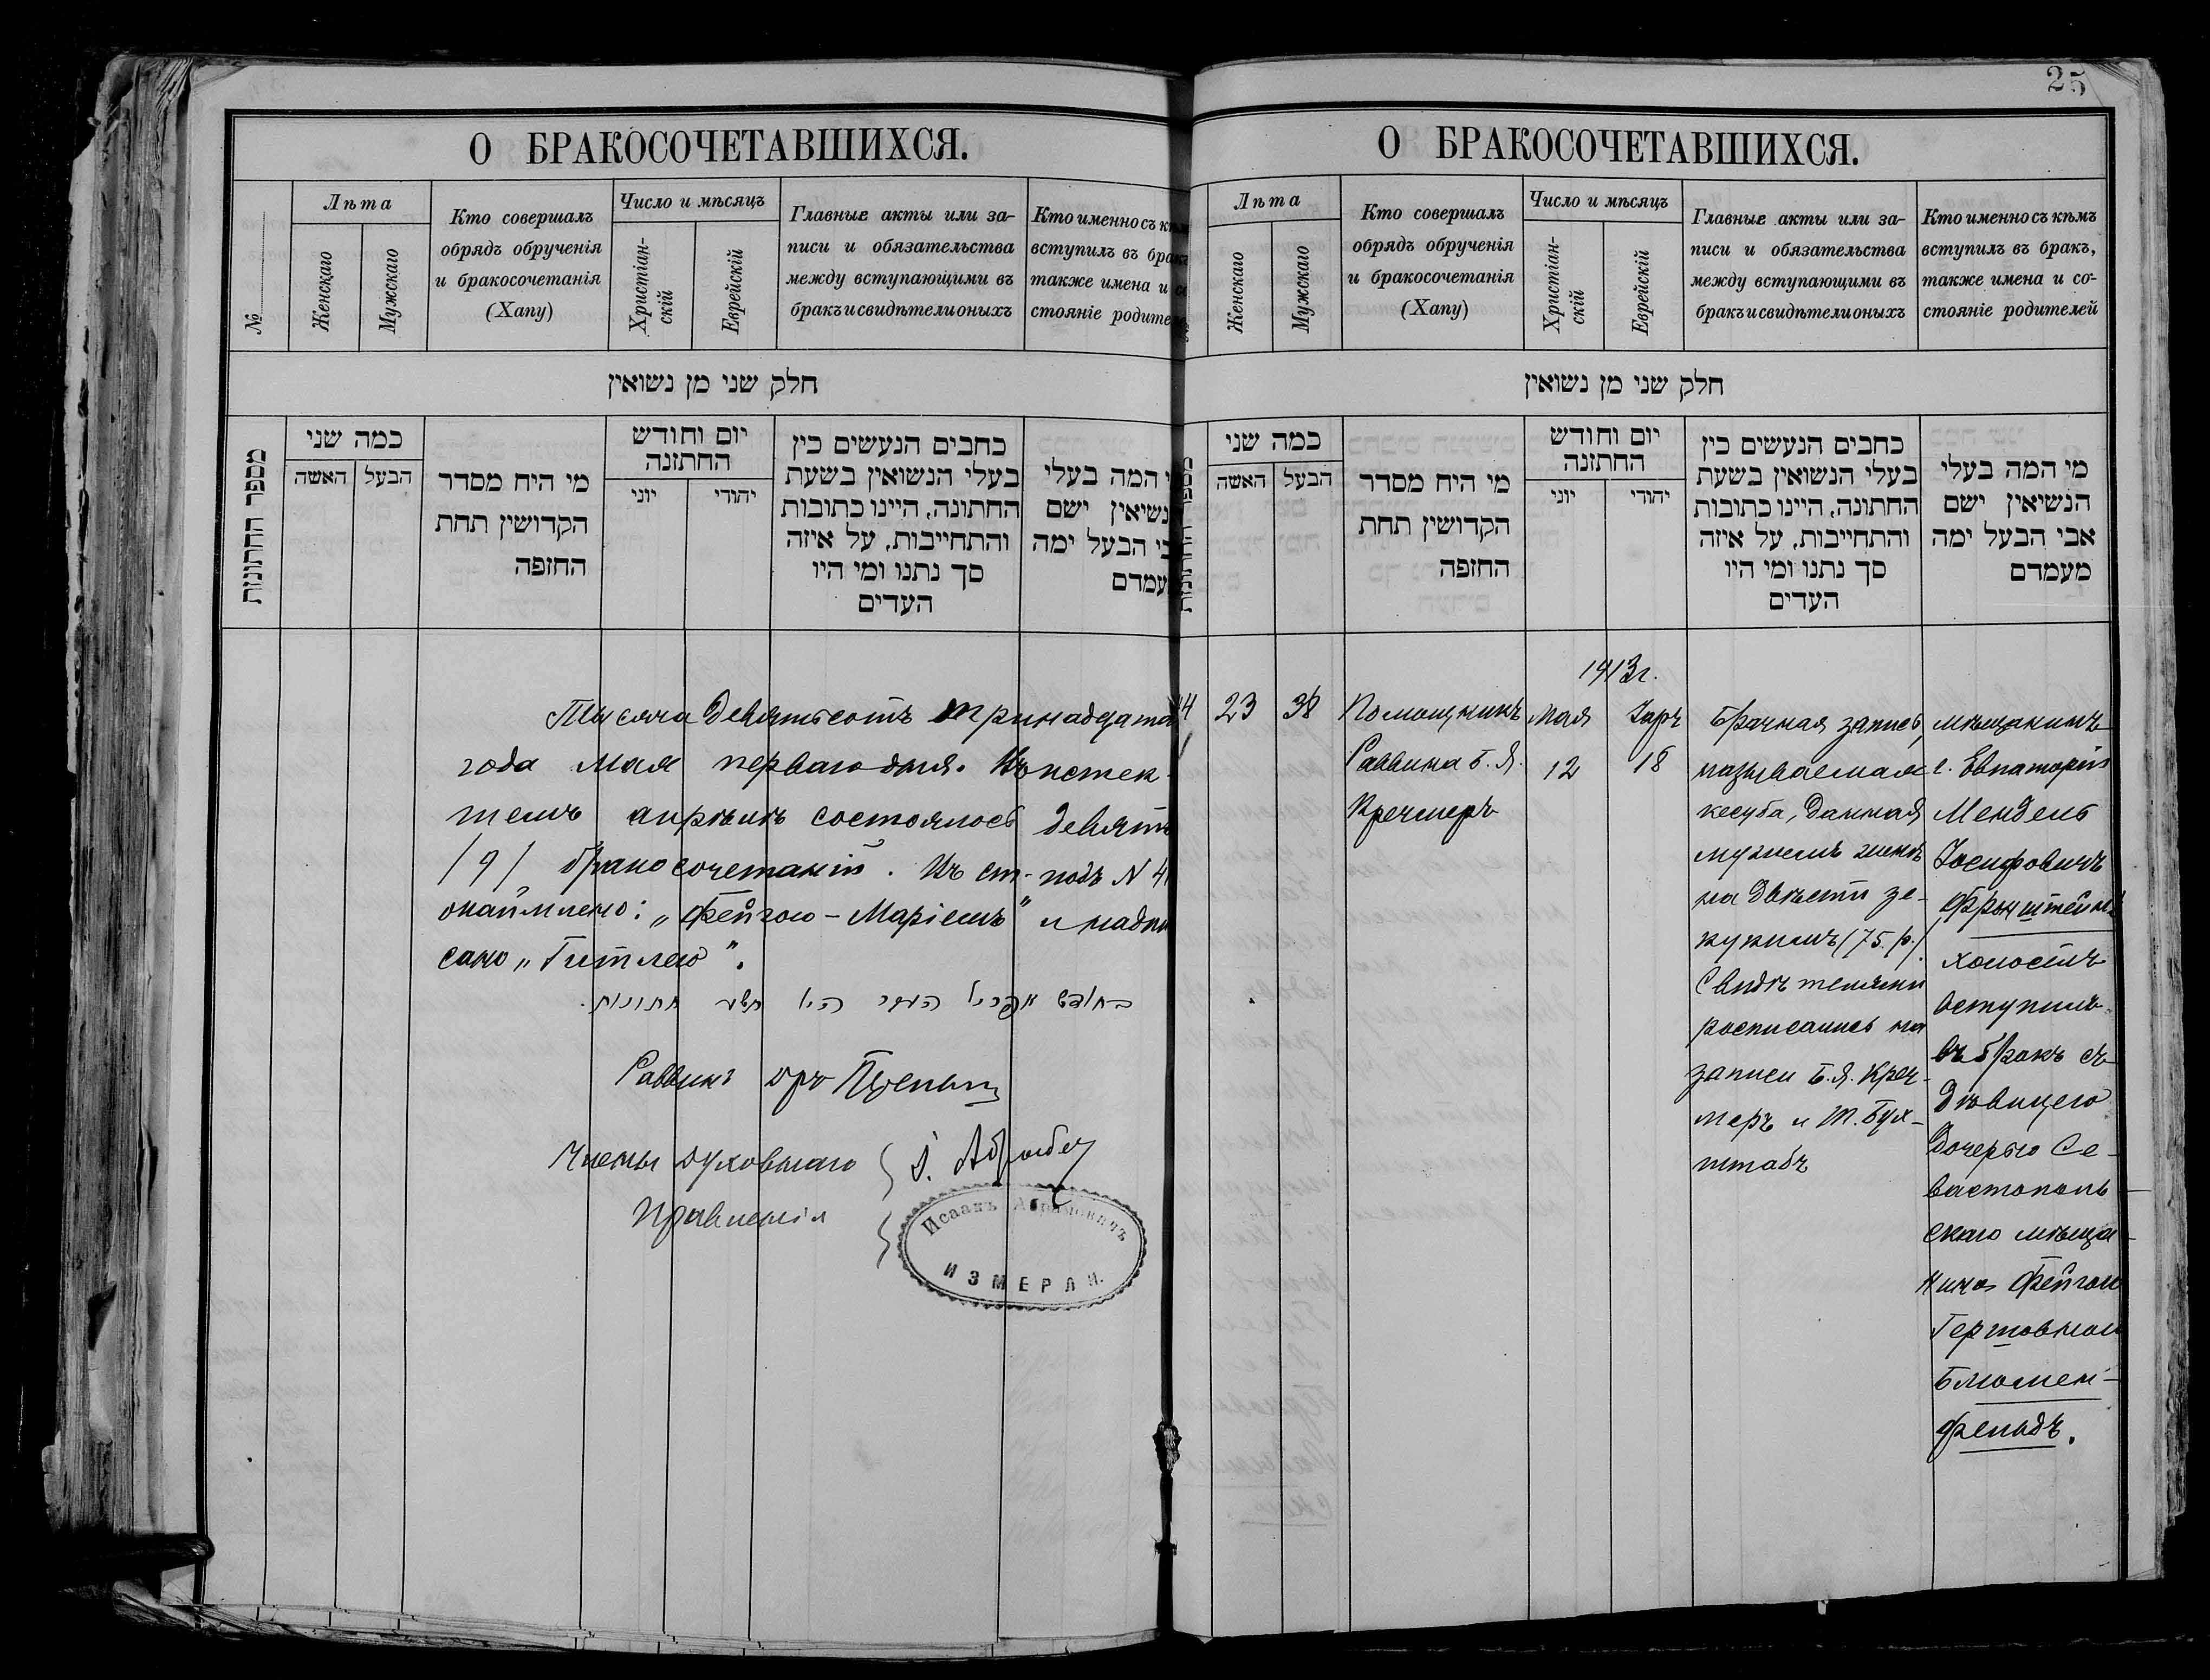 О БРАКОСОЧЕТАВШИХСЯ.
№
Лѣта
Женскаго
Мужскаго
Кто совершалъ
обрядъ обрученія
и бракосочетанія
(Хапу)
Число и мѣсяцъ
Христіан-
скій
Еврейскій
Главные акты или за-
писи и обязательства
между вступающими въ
бракъ и свидѣтели оныхъ
Кто именно съ
вступилъ въ
также имена и
стояніе
חלק שני מן נשואין
מספר החתונות
כמה שני
האשה
הבעל
מי היח מסדר
הקדושין תחת
החופה
יום וחודש
החתונה
יוני
יהודי
כחבים הנעשים כין
בעלי הנשואין בשעת
החתונה, היינו כתובות
והתחייבות, על איזה
סך נתנו ומי היו
העדים
המה בעלי
ישם
הבעל ימה
Тысяча девятьсотъ тринадцата
года Мая перваго дня. Въ истек-
шемъ апрѣлѣ состоялось девять
/9/ бракосочетаній. Въ ст. подъ N 4
окаймлено: „Фейгою-Маріемъ" и надпи
сано „Гитлею".
בחודש אפריל העבר היו תשע חתונות.
Раввинъ
Члены духовнаго
Правленія
Исаакъ Абрамовичъ
ИЗМЕРЛИ.
25
О БРАКОСОЧЕТАВШИХСЯ.
Лѣта
Женскаго
Мужскаго
Кто совершалъ
обрядъ обрученія
и бракосочетанія
(Хапу)
Число и мѣсяцъ
Христіан-
скій
Еврейскій
Главные акты или за-
писи и обязательства
между вступающими въ
бракъ и свидѣтели оныхъ
Кто именно съ кѣмъ
вступилъ въ бракъ,
также имена и со-
стояніе родителей
חלק שני מן נשואין
כמה שני
האשה
הבעל
מי היח מסדר
הקדושין תחת
החופה
יום וחודש
החתונה
יוני
יהודי
כחבים הנעשים כין
בעלי הנשואין בשעת
החתונה, היינו כתובות
והתחייבות, על איזה
סך נתנו ומי היו
העדים
מי המה בעלי
הנשיאין ישם
אבי הבעל ימה
מעמדם
1913г.
23
38
Помощникъ
Раввина Б. Я.
Кречмеръ
Мая
12
Іаръ
18
Брачная запись,
называемая
кесуба, данная
мужемъ женѣ
на двѣсти зе-
кукимъ (75 р.)
Свидѣтелями
росписались на
записи Б. Я. Креч-
меръ и М. Бух-
штабъ
мѣщанинъ
г. Евпаторіи
Мендель
Іосифовичъ
холостъ
вступилъ
въ бракъ съ
дѣвицею
дочерью Се-
вастополь-
скаго мѣща-
нина Фейгою
Гершовною
Блюмен-
фельдъ.